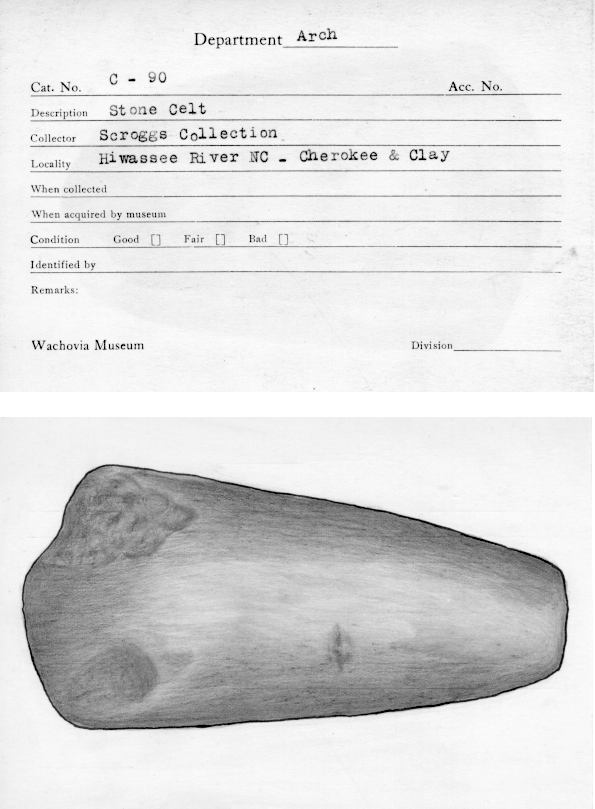 Department Arch
Cat. No. C - 90 Acc. No.
Description Stone Celt
Collector Scroggs Collection
Locality Hiwassee River NC - Cherokee & Clay
When collected
When acquired by museum
Condition Good [] Fair [] Bad []
Identified by
Remarks:
Wachovia Museum Division